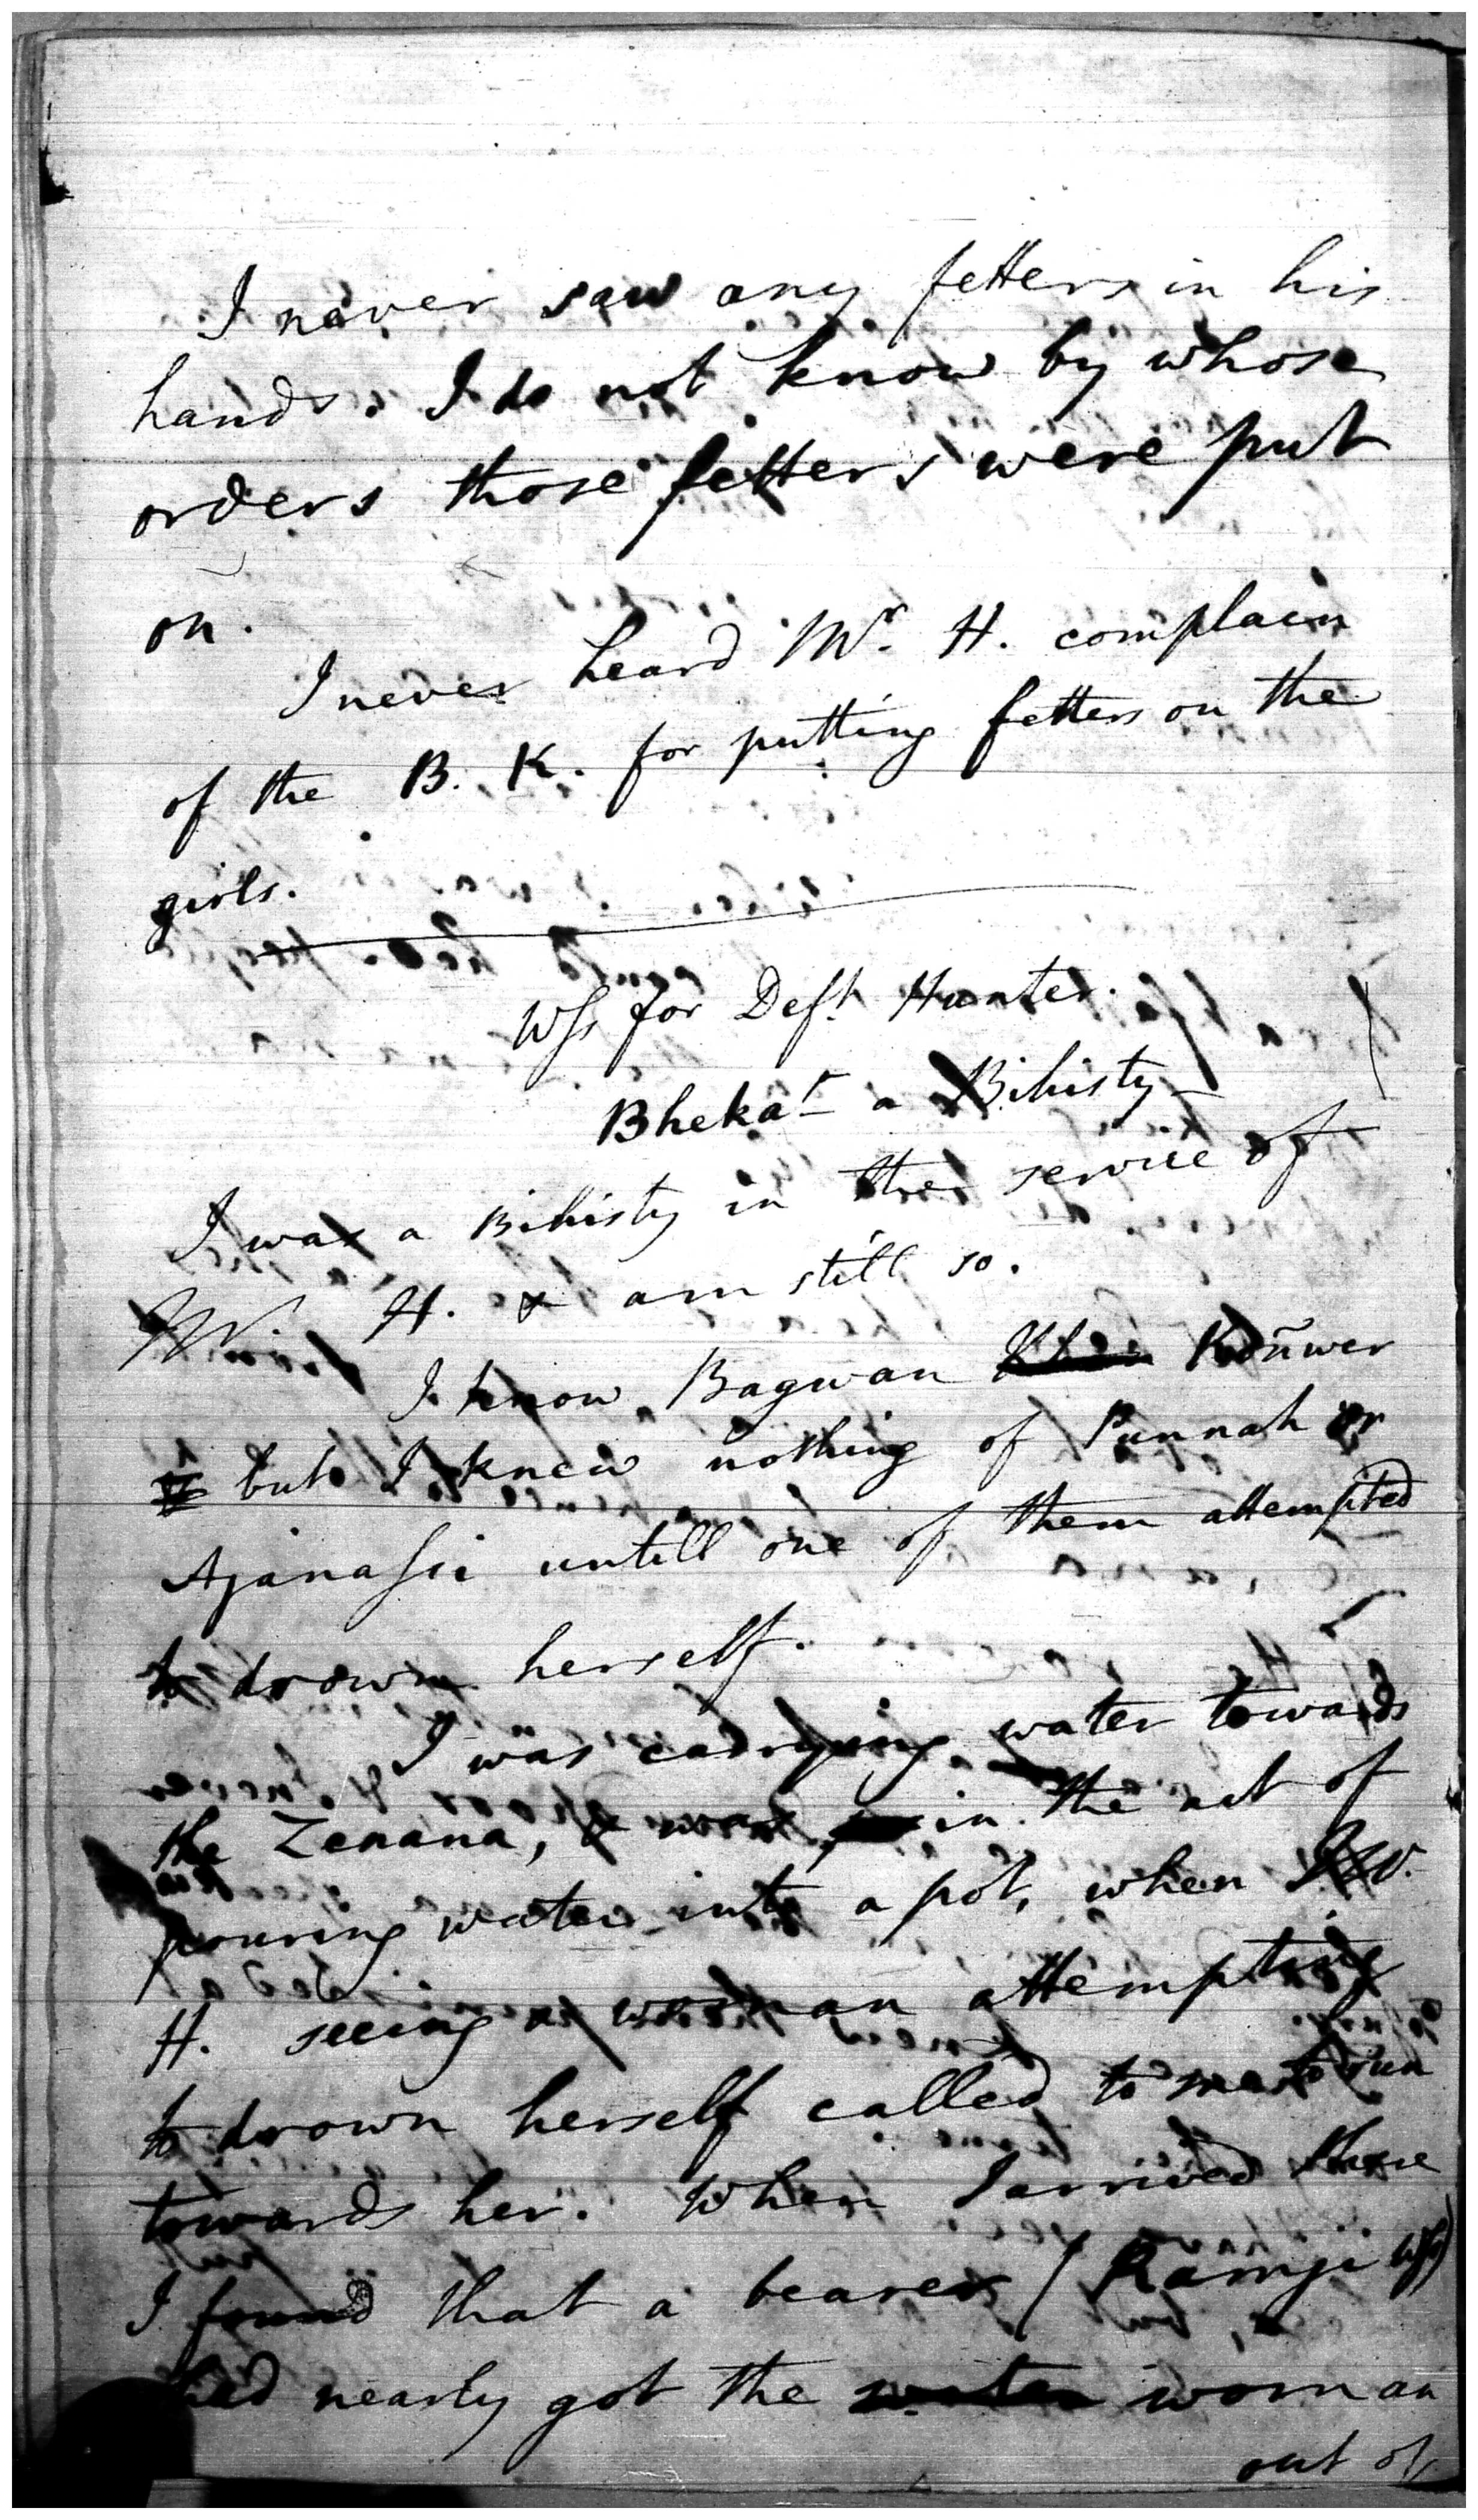 I never saw any fetters in his
hands. I do not know by whose
orders those fetters were put
on.
I never heard Mr. H. complain
of the B. K. for putting fetters on the
girls.
Wss for Deft Hunter.
Bheka a Bihisty
I was a Bihisty in the service of
Mr. H. & am still so.
I know Bagwan Koñwer
but I knew nothing of Punnah or
Ajanassi untill one of them attempted
to drown herself.
I was carrying water towards
the Zenana, & was in the act of
pouring water into a pot, when Mr.
H. seeing a woman attempting
to drown herself called to me to run
towards her. When I arrived there
I found that a bearer (Ramji Wss)
had nearly got the woman
out of